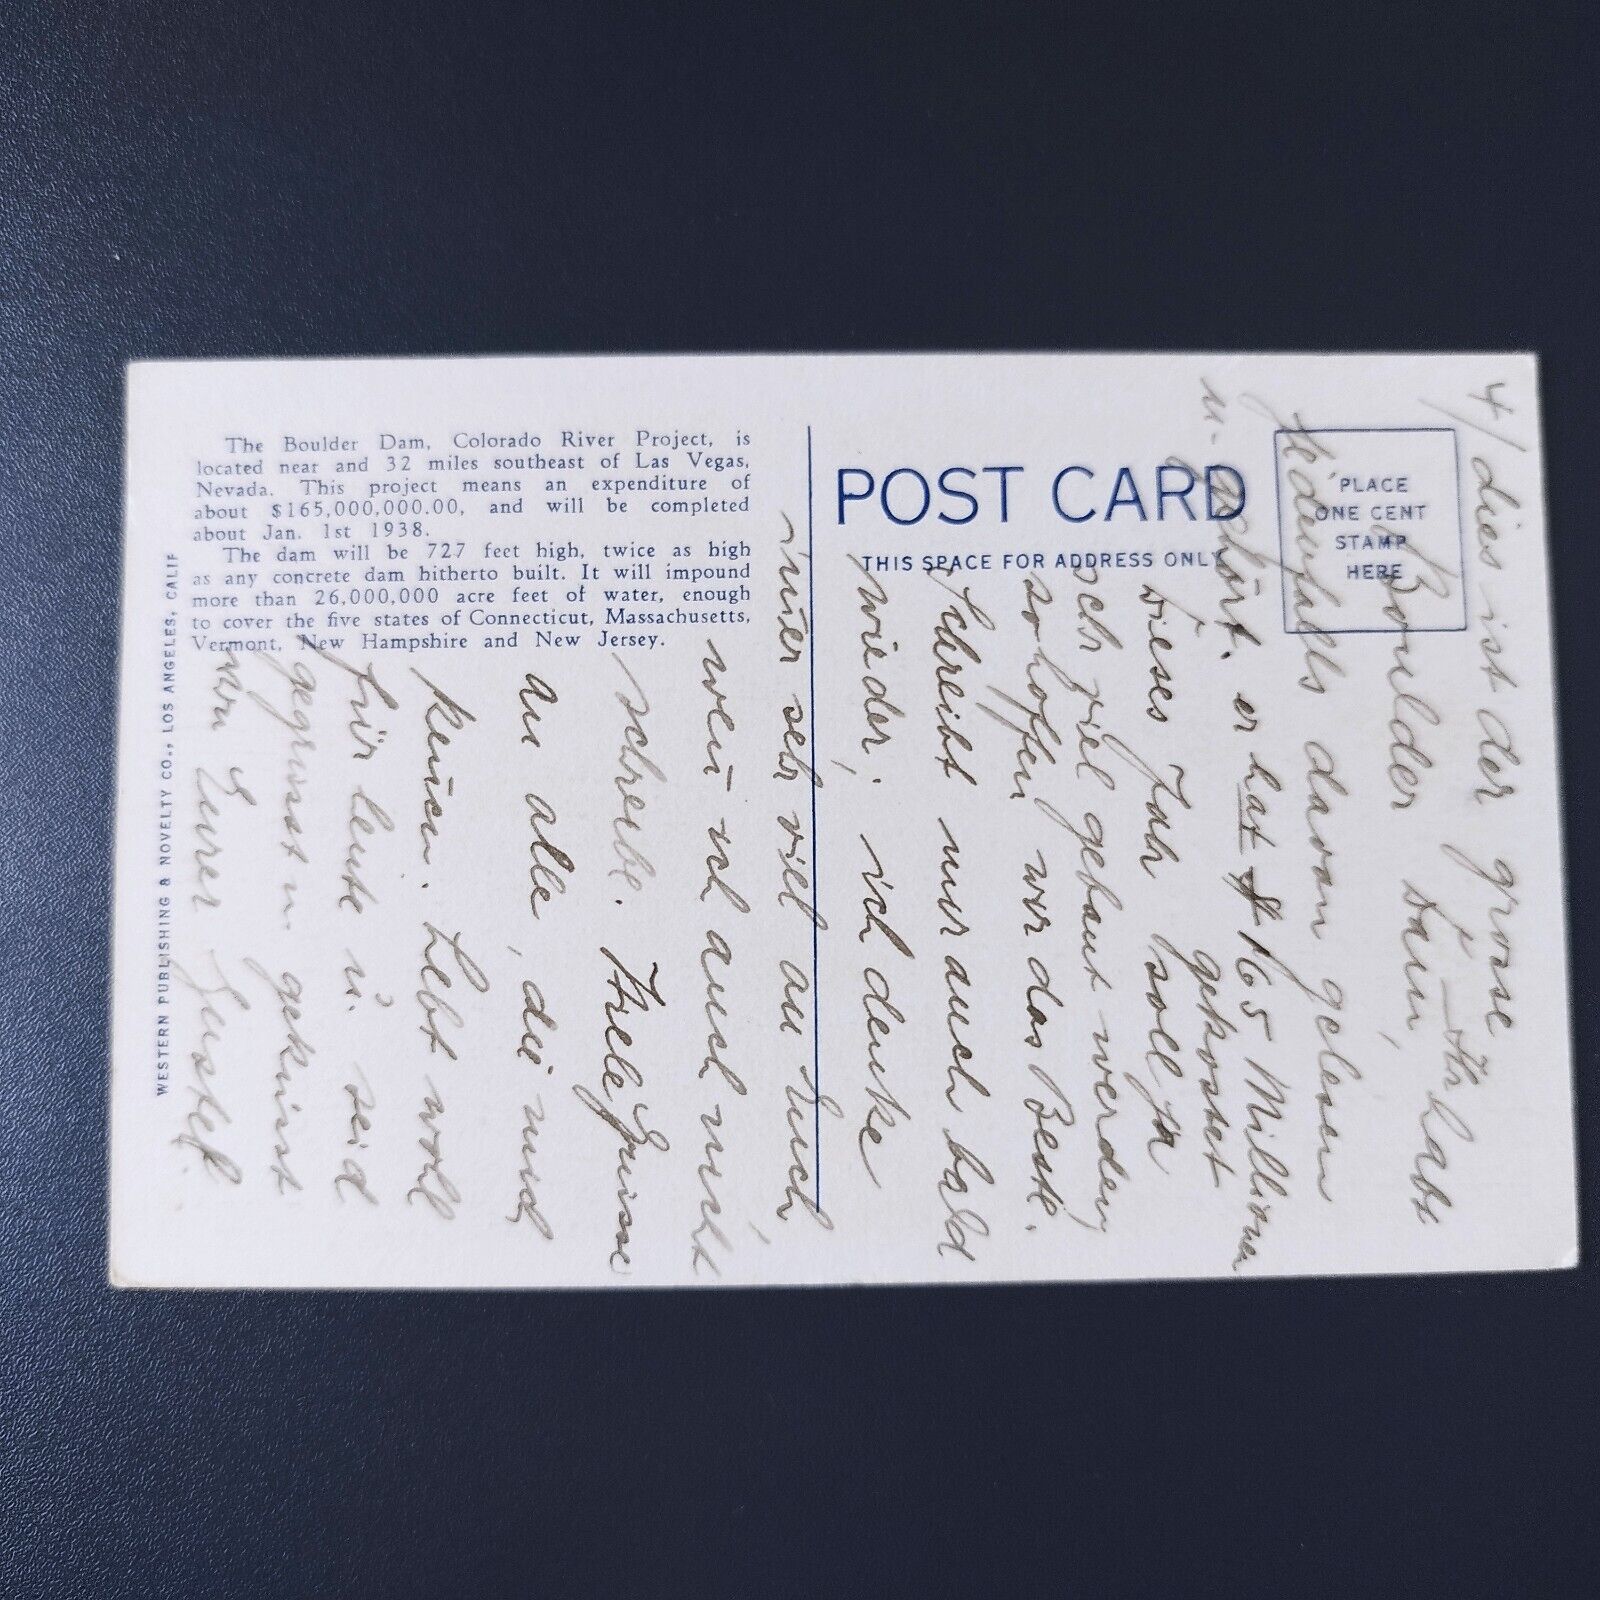 The Boulder Dam, Colorado River Project, is
located near and 32 miles southeast of Las Vegas,
Nevada. This project means an expenditure of
about $165,000,000.00, and will be completed
about Jan. 1st 1938.
The dam will be 727 feet high, twice as high
as any concrete dam hitherto built. It will impound
more than 26,000,000 acre feet of water, enough
to cover the five states of Connecticut, Massachusetts,
Vermont, New Hampshire and New Jersey.
WESTERN PUBLISHING & NOVELTY CO., LOS ANGELES, CALIF
POST CARD
THIS SPACE FOR ADDRESS ONLY
PLACE
ONE CENT
STAMP
HERE
4/ dies ist der grosse
Boulder Dam, – Ihr habt
Jedenfalls davon gelesen
u. gehört. er hat $165 Millionen
gekostet
Dieses Jahr soll ja
sehr viel gebaut werden,
so hoffen wir das Beste.
Schreibt mir auch bald
wieder, ich denke
immer sehr viel an Euch,
wenn ich auch nicht
schreibe. Viele Grüsse
an alle, die mich
kennen. Lebt wohl
für heute u. seid
gegrüsst u. geküsst
von Eurer Gustel.